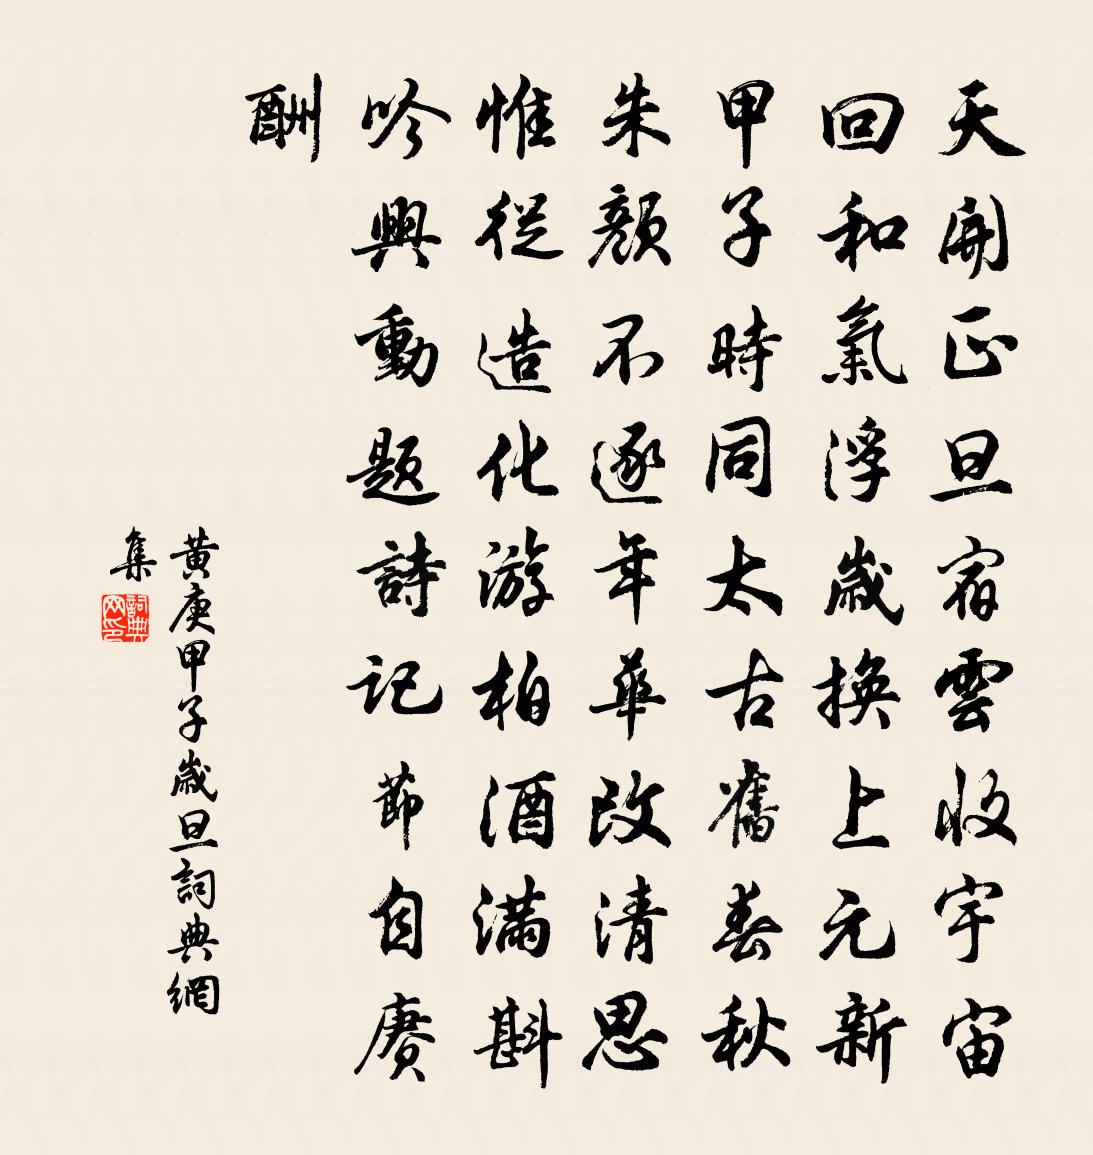 天開正旦宿雲收宇宙
回和氣浮歲換上元新
甲子時同太古舊春秋
朱顏不逐年華改清思
惟從造化游柏酒滿斟
吟興動題詩記節自賡
酬
黃庚甲子歲旦詞典網
集
詞典网印